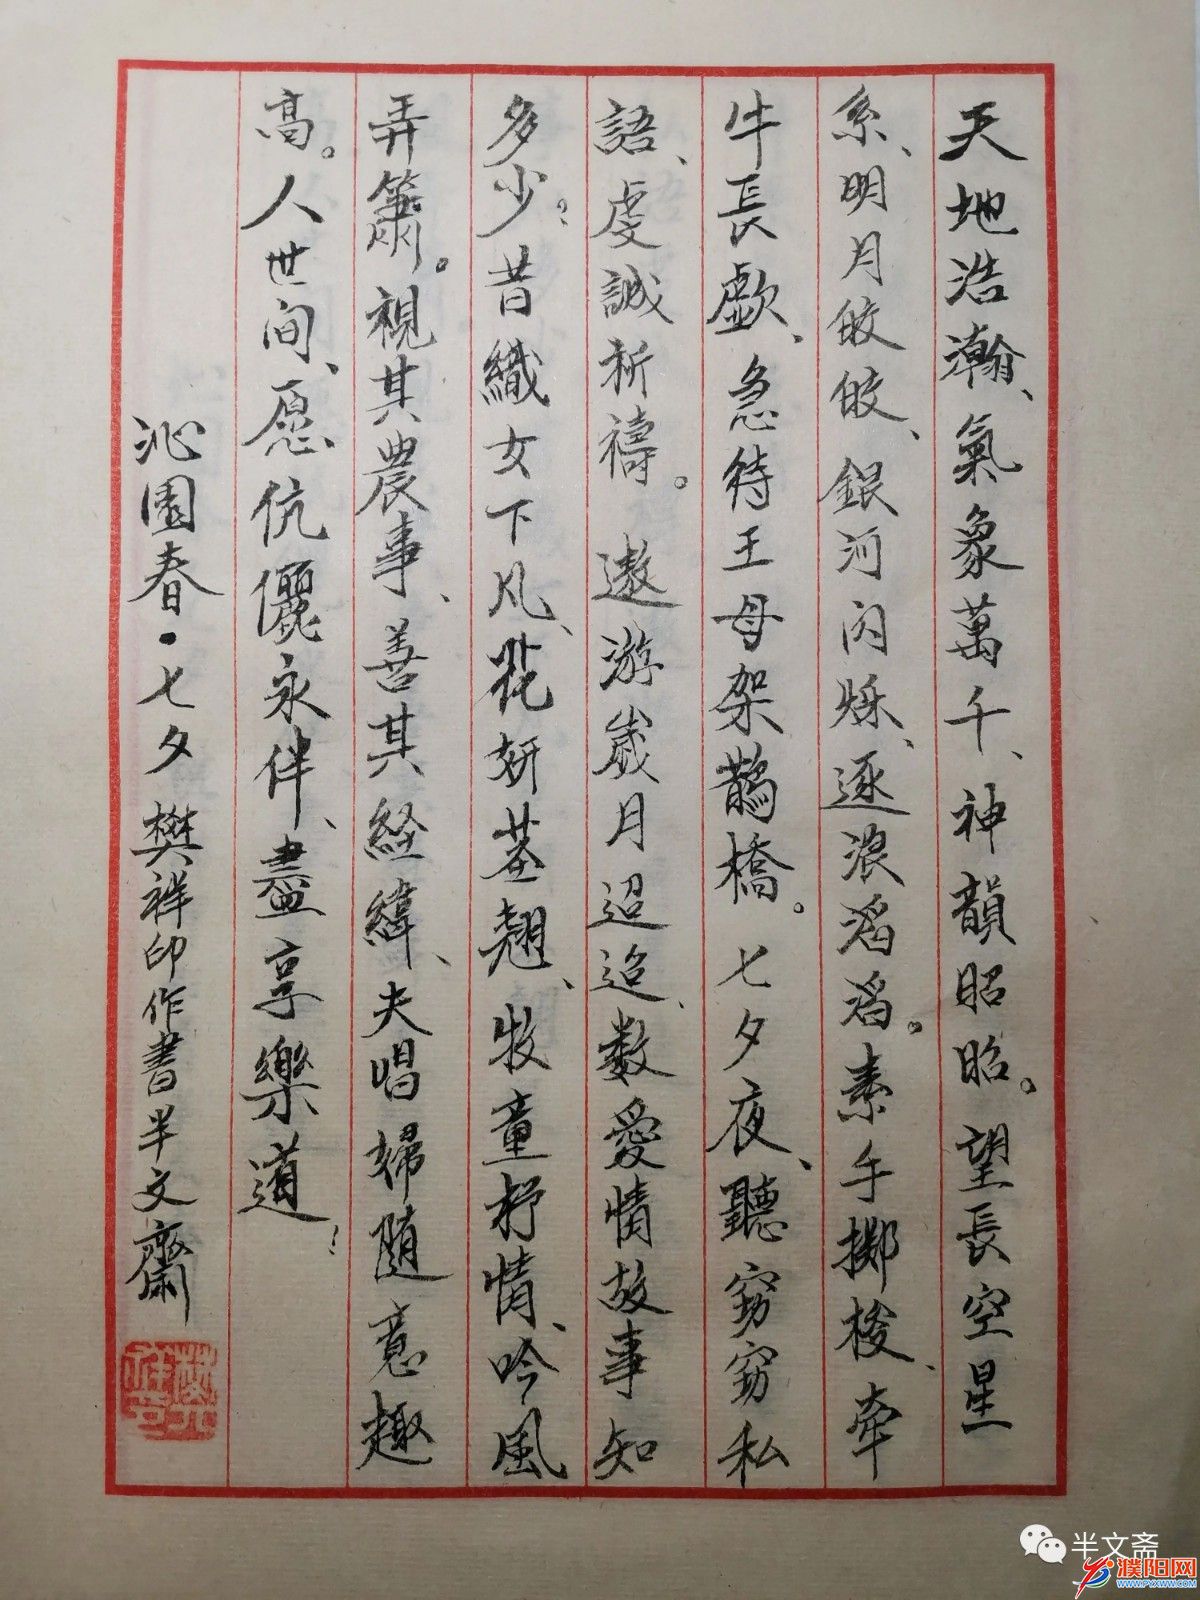 天地浩瀚、氣象萬千、神韻昭昭。望長空星
系、明月皎皎、銀河闪烁、逐浪滔滔。素手擲梭、牽
牛長歔、急待王母架鵲橋。七夕夜、聽窃窃私
語、虔誠祈禱。 遨游歲月迢迢、数愛情故事知
多少？昔織女下凡、花妍茎翹、牧童抒情、吟風
弄簫。視其農事、善其経緯、夫唱婦随意趣
高。人世间、愿伉儷永伴、盡享樂道！
沁園春·七夕 樊祥印作書半文齋
半文斋
濮阳网
WWW.PYXWW.COM